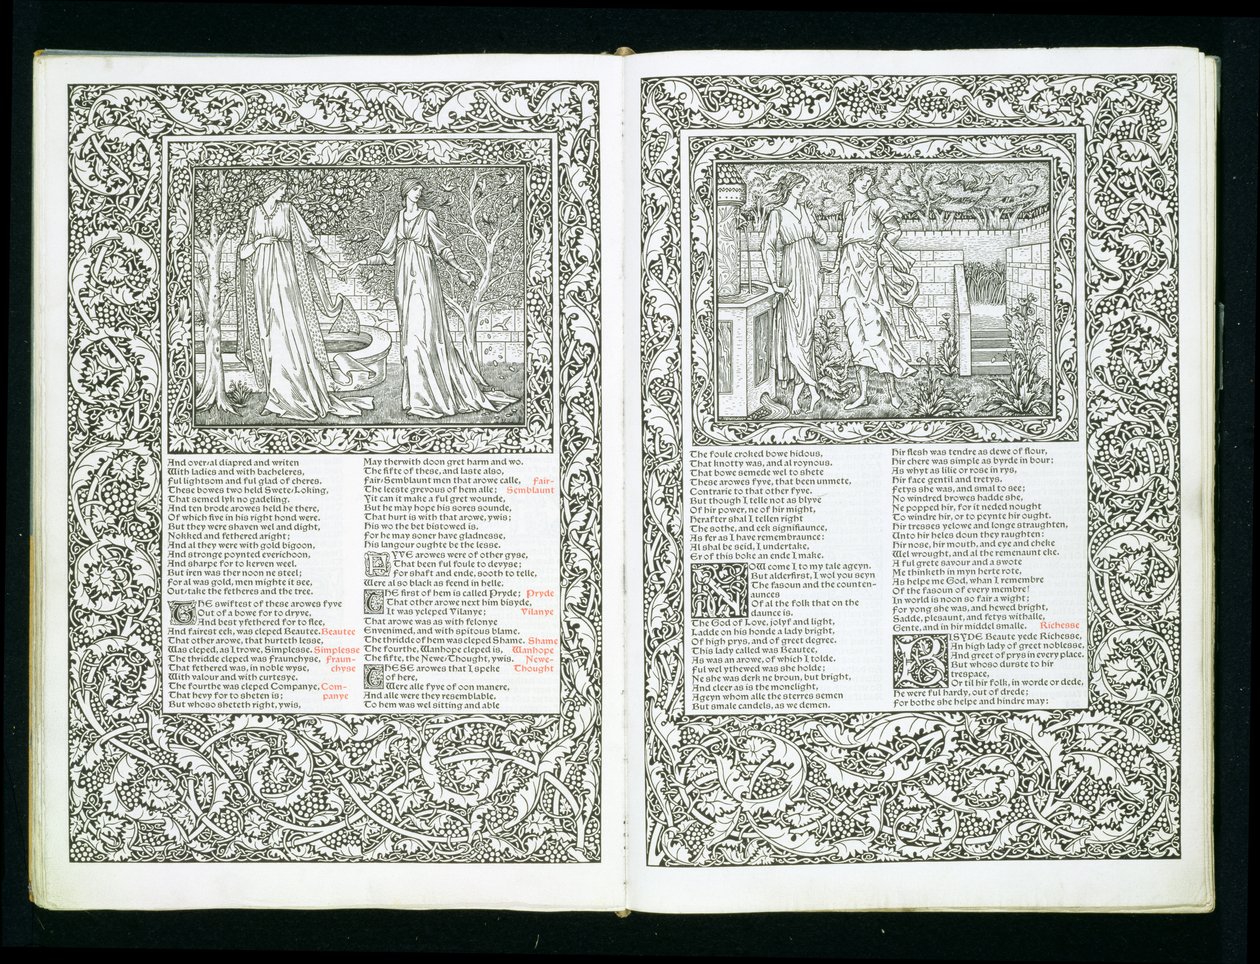 And over-al diapred and writen
With ladies and with bacheleres,
Ful lightsom and ful glad of cheres.
These bowes two held Swete-Loking,
That semed lyk no gadeling.
And ten brode arowes held he there,
Of which five in his right hond were.
But they were shaven wel and dight,
Nokked and fethered aright;
And al they were with gold bigoon,
And stronge poynted everichoon,
And sharpe for to kerven weel.
But iren was ther noon ne steel;
For al was gold, men mighte it see,
Out-take the fetheres and the tree.
THE swiftest of these arowes fyve
Out of a bowe for to dryve,
And best yfethered for to flee,
And fairest eek, was cleped Beautee. Beautee
That other arowe, that hurteth lesse,
Was cleped, as I trowe, Simplesse. Simplesse
The thridde cleped was Fraunchyse, Fraun-
That fethered was, in noble wyse, chyse
With valour and with curtesye.
The fourthe was cleped Companye, Com-
That hevy for to sheten is; panye
But whoso sheteth right, ywis,
May therwith doon gret harm and wo.
The fifte of these, and laste also,
Fair-Semblaunt men that arowe calle, Fair-
The leeste grevous of hem alle; Semblaunt
Yit can it make a ful gret wounde,
But he may hope his sores sounde,
That hurt is with that arowe, ywis;
His wo the bet bistowed is.
For he may soner have gladnesse,
His langour oughte be the lesse.
FYVE arowes were of other gyse,
That been ful foule to devyse;
For shaft and ende, sooth to telle,
Were al so blak as feend in helle.
THE first of hem is called Pryde; Pryde
That other arowe next him bisyde,
It was ycleped Vilanye; Vilanye
That arowe was as with felonye
Envenimed, and with spitous blame.
The thridde of hem was cleped Shame. Shame
The fourthe, Wanhope cleped is, Wanhope
The fifte, the Newe-Thought, ywis. Newe-
Thought
THESE arowes that I speke
of here,
Were alle fyve of oon manere,
And alle were they resemblable.
To hem was wel sitting and able
The foule croked bowe hidous,
That knotty was, and al roynous.
That bowe semede wel to shete
These arowes fyve, that been unmete,
Contrarie to that other fyve.
But though I telle not as blyve
Of hir power, ne of hir might,
Herafter shal I tellen right
The sothe, and eek signifiaunce,
As fer as I have remembraunce:
Al shal be seid, I undertake,
Er of this boke an ende I make.
NOW come I to my tale ageyn.
But alderfirst, I wol you seyn
The fasoun and the counten-
aunces
Of al the folk that on the
daunce is.
The God of Love, jolyf and light,
Ladde on his honde a lady bright,
Of high prys, and of greet degree.
This lady called was Beautee,
As was an arowe, of which I tolde.
Ful wel ythewed was she holde;
Ne she was derk ne broun, but bright,
And cleer as is the monelight,
Ageyn whom alle the sterres semen
But smale candels, as we demen.
Hir flesh was tendre as dewe of flour,
Hir chere was simple as byrde in bour;
As whyt as lilie or rose in rys,
Hir face gentil and tretys.
Fetys she was, and smal to see;
No windred browes hadde she,
Ne popped hir, for it neded nought
To windre hir, or to peynte hir ought.
Hir tresses yelowe and longe straughten,
Unto hir heles doun they raughten:
Hir nose, hir mouth, and eye and cheke
Wel wrought, and al the remenaunt eke.
A ful grete savour and a swote
Me thinketh in myn herte rote,
As helpe me God, whan I remembre
Of the fasoun of every membre!
In world is noon so fair a wight;
For yong she was, and hewed bright,
Sadde, plesaunt, and fetys withalle,
Gente, and in hir middel smalle. Richesse
BISYDE Beaute yede Richesse,
An high lady of greet noblesse,
And greet of prys in every place.
But whoso durste to hir
trespace,
Or til hir folk, in worde or dede,
He were ful hardy, out of drede;
For bothe she helpe and hindre may: